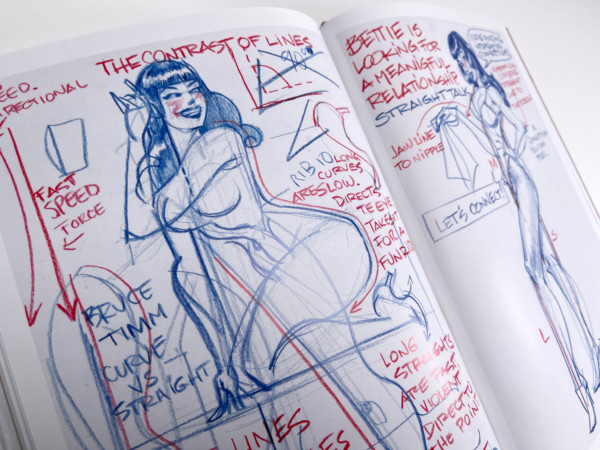 THE CONTRAST OF LINES
EED.
RECTIONAL
90°
FAST
SPEED
FORCE
RIB 10
LONG
CURVES
ARE SLOW.
DIRECTS
TAKES IT
FOR A
FUN RI
BRUCE
TIMM
CURVE
VS
STRAIGHT
LONG
STRAIGHTS
ARE FAST
VIOLENT
DIRECT TO
THE POIN
LINES
BETTIE IS
LOOKING FOR
A MEANIGFUL
RELATIONSHIP
STRAIGHT TAL
JAW LINE
TO NIPPLE
LET'S CONNECT!
M
S
L